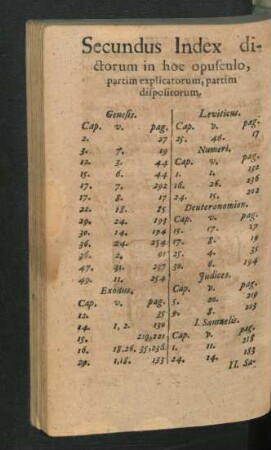 Secundus Index di-
ctorum in hoc opusculo,
partim explicatorum, partim
dispositorum.
Genesis.
Cap. v. pag.
2. 27
3. 7. 19
12. 3. 44
15. 6. 44
17. 7. 292
17. 8. 17
22. 18. 25
29. 24. 193
30. 14. 194
36. 24. 254
36. 2. 91
47. 31. 257
49. 11. 254
Exodus.
Cap. v. pag.
12. 35
14. 1, 2. 130
15. 219, 221
16. 18. 26. 35, 236.
20. 1, 18. 133
Leviticus.
Cap. v. pag.
25. 46. 17
Numeri.
Cap. v. pag.
1. 1. 152
16. 26. 236
24. 15. 202
Deuteronomion.
Cap. v. pag.
15. 17. 17
17. 8. 19
25. 4. 35
30. 6. 194
Judices.
Cap. v. pag.
5. 20. 219
9. 8. 203
I. Samuelis.
Cap. v. pag.
1. 11. 218
24. 14. 183
II. Sa-